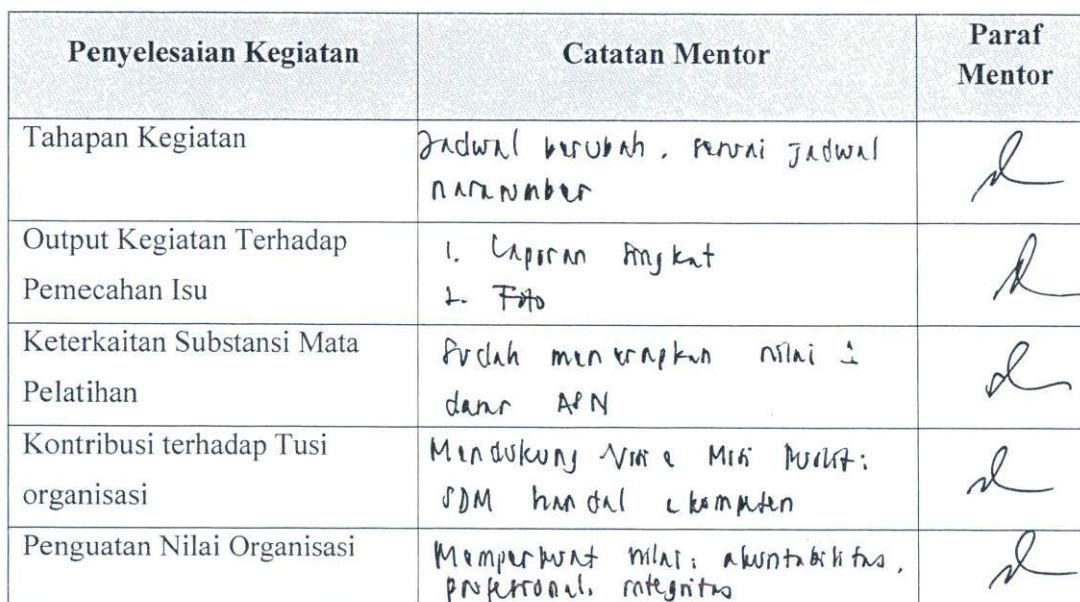 Penyelesaian Kegiatan
Catatan Mentor
Paraf
Mentor
Tahapan Kegiatan
Jadwal berubah. sesuai Jadwal
narasumber
Output Kegiatan Terhadap
Pemecahan Isu
1. Laporan singkat
2. Foto
Keterkaitan Substansi Mata
Pelatihan
Sudah menerapkan nilai 2
dasar ASN
Kontribusi terhadap Tusi
organisasi
Mendukung Visi & Misi
SDM handal & kompeten
Penguatan Nilai Organisasi
Memperkuat nilai: akuntabilitas,
profesional, integritas